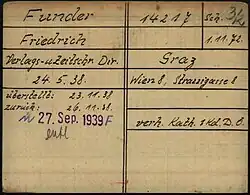 Funder 14217 Sch. 3/2
Friedrich 1.11.72.
Verlags-u.zeitschn Dir. Graz
24.5.38. Wien 8, Strozzigasse 8
überstellt: 23.11.38
zurück: 26.11.38
27. Sep. 1939 F verh. Kath. 1 Kd. D.Ö.
entl